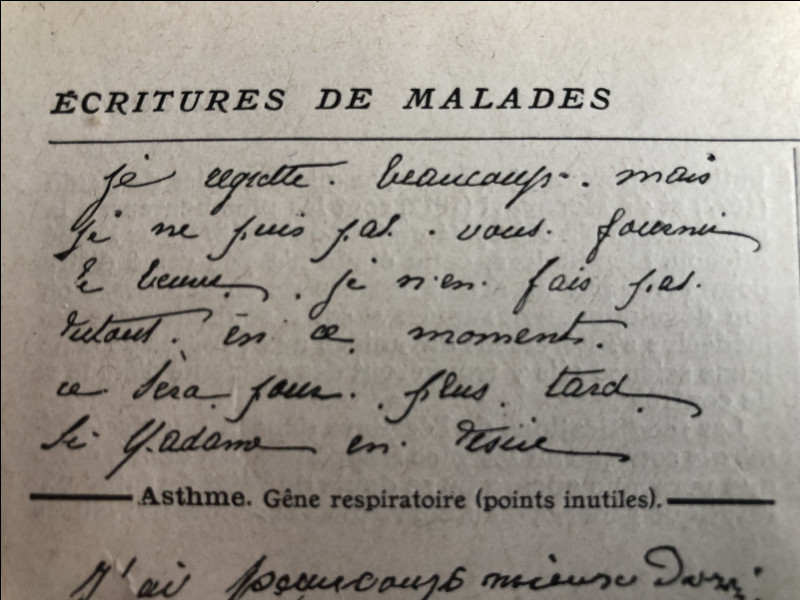 ÉCRITURES DE MALADES
je regrette. beaucoup. . mais
je ne puis pas . vous. fournir
le beurre . je n'en. fais pas.
dutout. en ce. moment.
ce Sèra pour. . plus. tard
Si Madame en. desire
Asthme. Gêne respiratoire (points inutiles).
J'ai beaucoup mieux dormi